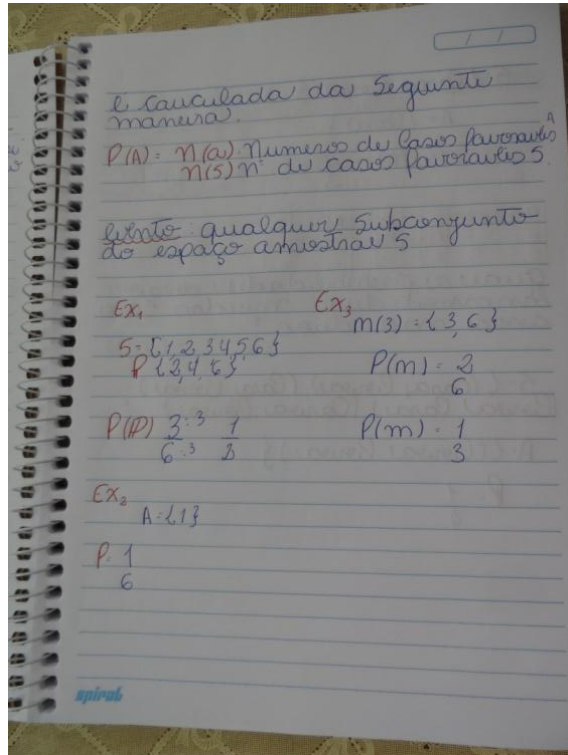 / /
é cauculada da Seguinte
maneira.
P(A) = n(a) Numeros de Casos favoraveis A
n(S) nº de casos favoraveis S.
Evento qualquer Subconjunto
do espaço amostral S
Ex1
S={1,2,3,4,5,6}
P {2,4,6}
P(P) 3:3 1
6:3 2
Ex2
A={1}
P= 1
6
Ex3
m(3) = {3,6}
P(m) = 2
6
P(m) = 1
3
spiral